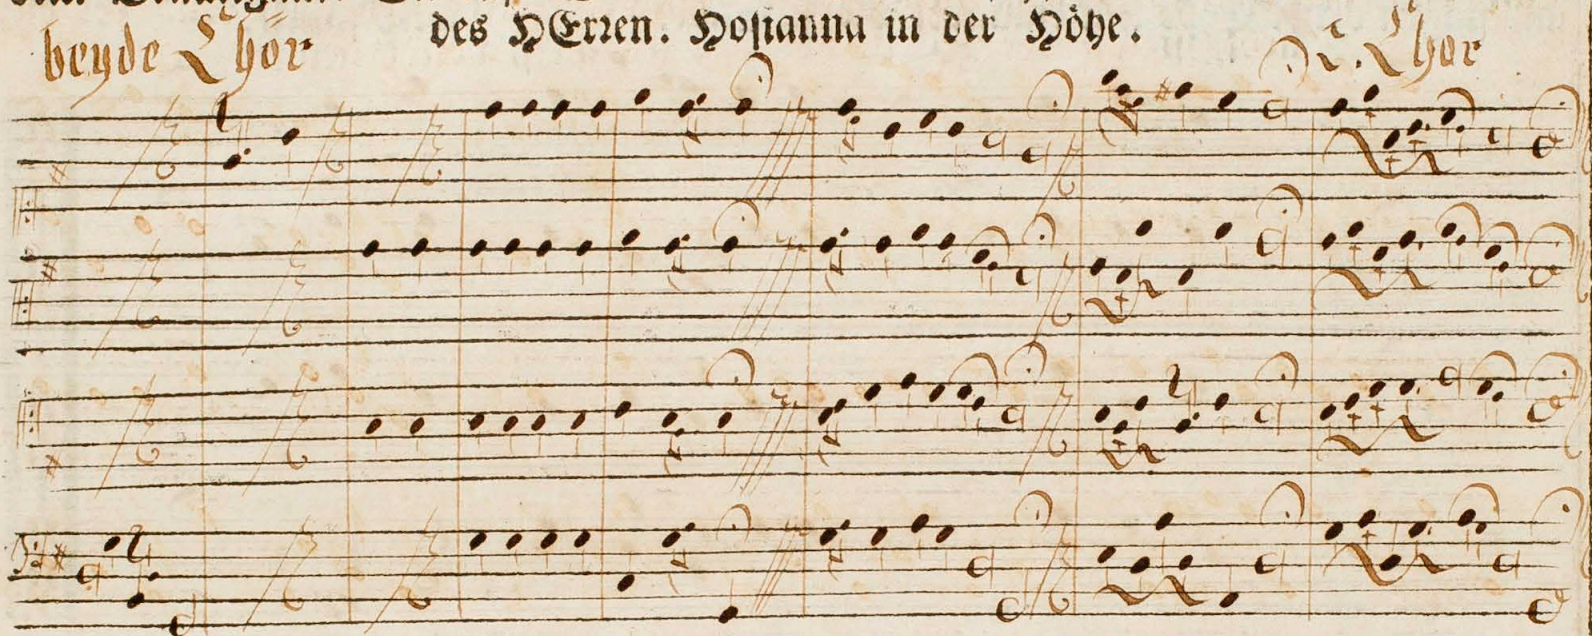 des HErren. Hosianna in der Höhe.
beyde Chör
2. Chor